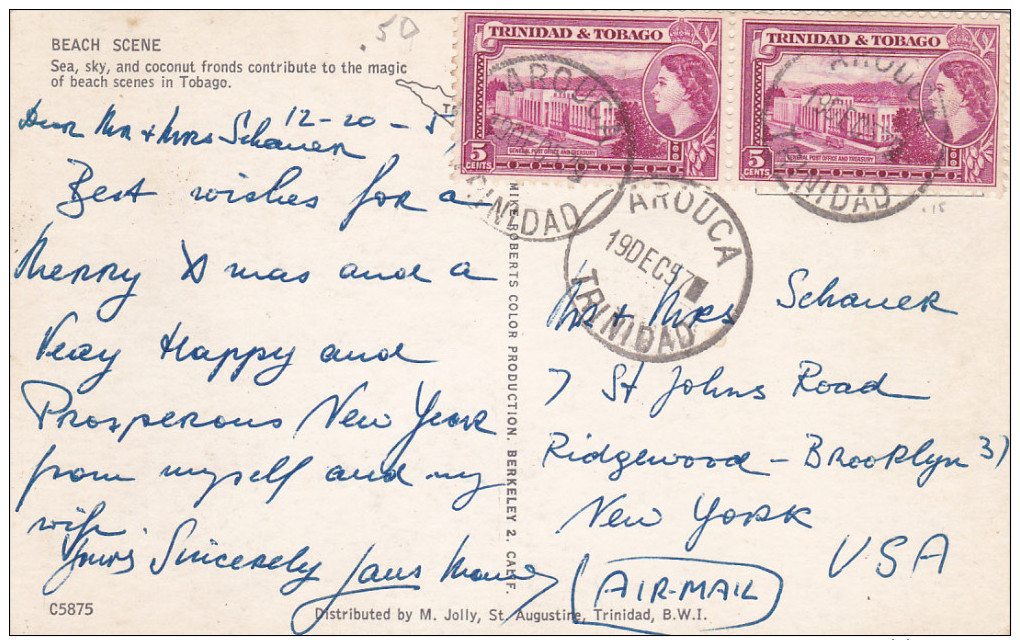 .50
BEACH SCENE
Sea, sky, and coconut fronds contribute to the magic
of beach scenes in Tobago.
Dear Mr + Mrs Schauer 12-20-5
Best wishes for a
Merry Xmas and a
Very Happy and
Prosperous New Year
from myself and my
wife
Yours Sincerely
C5875
Distributed by M. Jolly, St. Augustine, Trinidad, B.W.I.
MIKE ROBERTS COLOR PRODUCTION. BERKELEY 2. CALIF.
TRINIDAD & TOBAGO
5 CENTS
GENERAL POST OFFICE AND TREASURY
TRINIDAD & TOBAGO
5 CENTS
GENERAL POST OFFICE AND TREASURY
AROUCA
TRINIDAD
AROUCA
TRINIDAD
AROUCA
19DEC57
TRINIDAD
Mr + Mrs Schauer
7 St Johns Road
Ridgewood - Brooklyn
New York
USA
AIR-MAIL